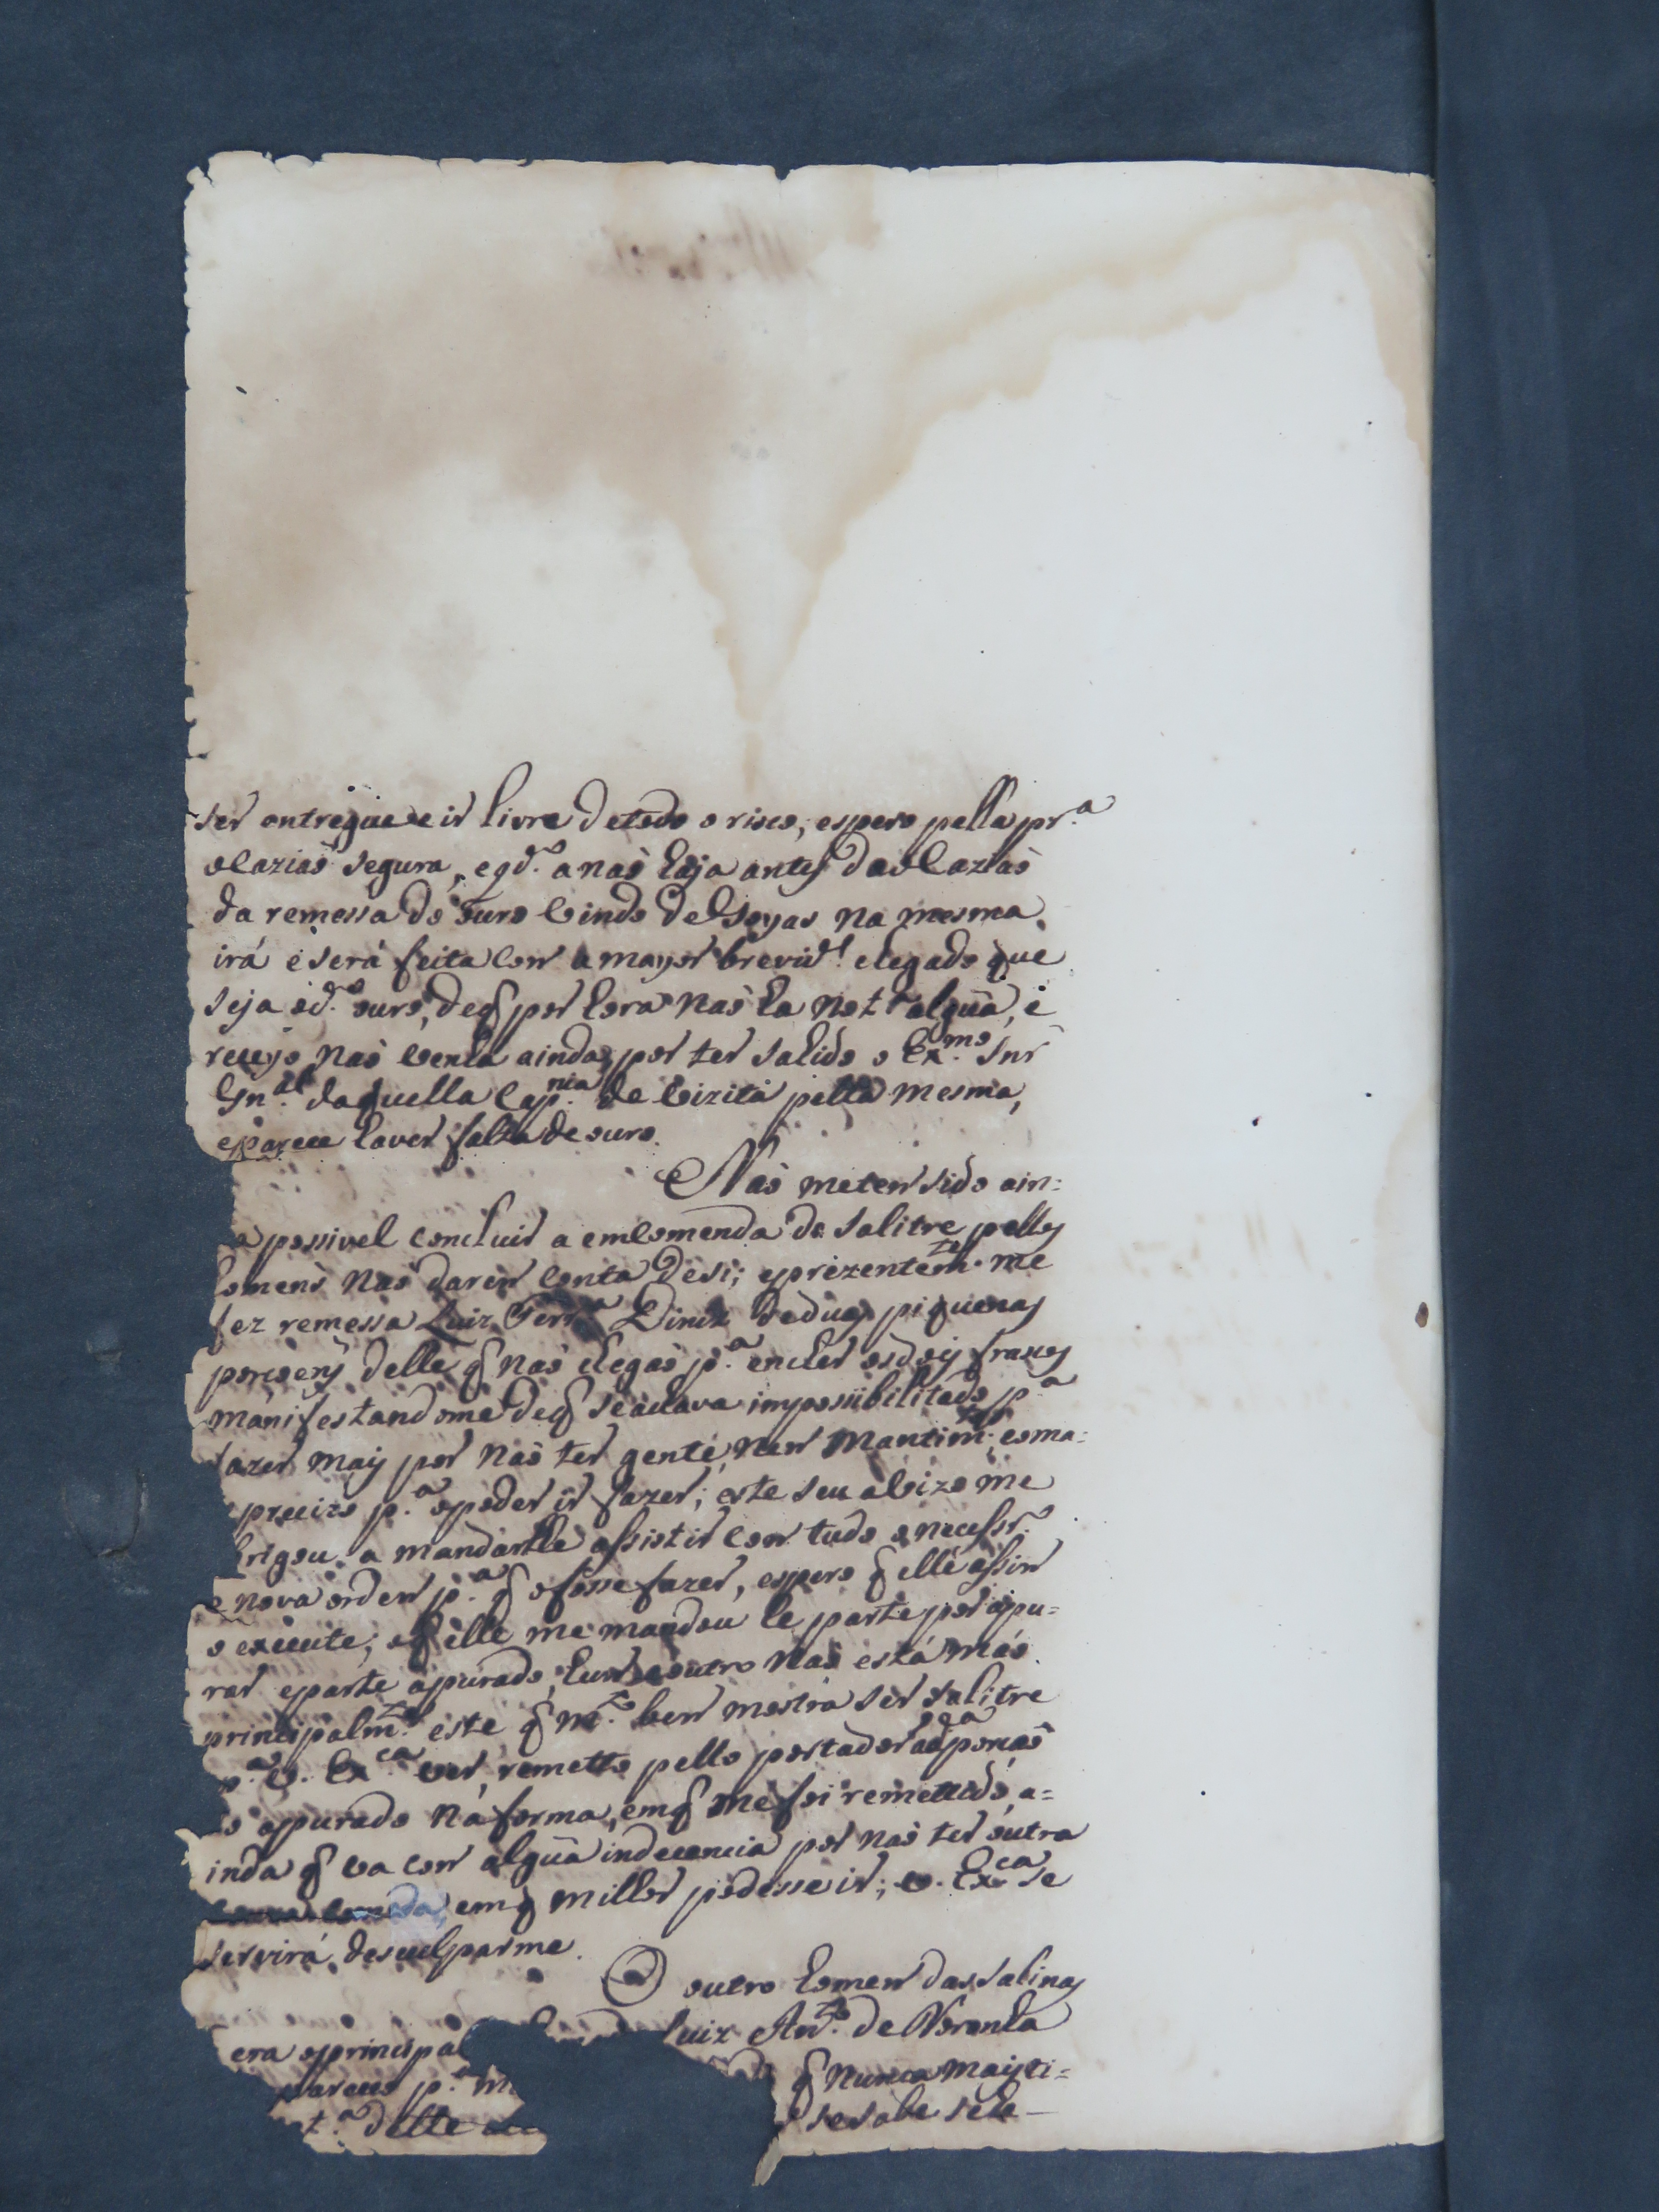 ser entregue e ir livre de todo o risco, espero pella pr.ª
ocaziaõ segura, e qd.º a naõ haja antes da ocaziaõ
da remessa do ouro vindo de Goyas na mesma
irá e será feita com a mayor brevid.e chegado que
seja o d.º ouro, de q̃ por hora naõ ha not.ª algũa, e
receyo naõ venha ainda, por ter sahido o Ex.mo Snr
Gn.al daquella Cap.nia de vizita pella mesma,
e parece haver falta de ouro.
Naõ me tem sido ain=
a possivel concluir a emcomenda do salitre pellos
homens naõ darem conta de si; e prezentem.te me
fez remessa Luiz Ferr.ª Diniz de duas piquenas
porsoens delle q̃ naõ chegaõ p.ª encher os dois frascos
manifestandome de q̃ se achava impossibilitado p.ª
fazer mais por naõ ter gente, nem mantim.tos e o ma=
precizo p.ª o poder ir fazer; este seu avizo me
brigou a mandarlhe assistir com tudo o necessr.º
e nova ordem p.ª q̃ o fosse fazer, espero q̃ elle assim
o execute; o q̃ elle me mandou he parte por apu=
rar e parte apurado, hum e outro naõ está máo
principalm.te este q̃ m.to bem mostra ser salitre
p.ª V. Ex.ca ver, remetto pello portador a d.ª porcaõ
do apurado na forma, em q̃ me foi remettido, a=
inda q̃ va com algũa indecencia por naõ ter outra
em q̃ milhor podesse ir; V. Ex.ca se
servirá desculparme.
O outro homem das salinas
era o principal Luiz Ant.º de Noronha
pareceo p.ª q̃ nunca mais ti=
t.ª delle se sabe se he